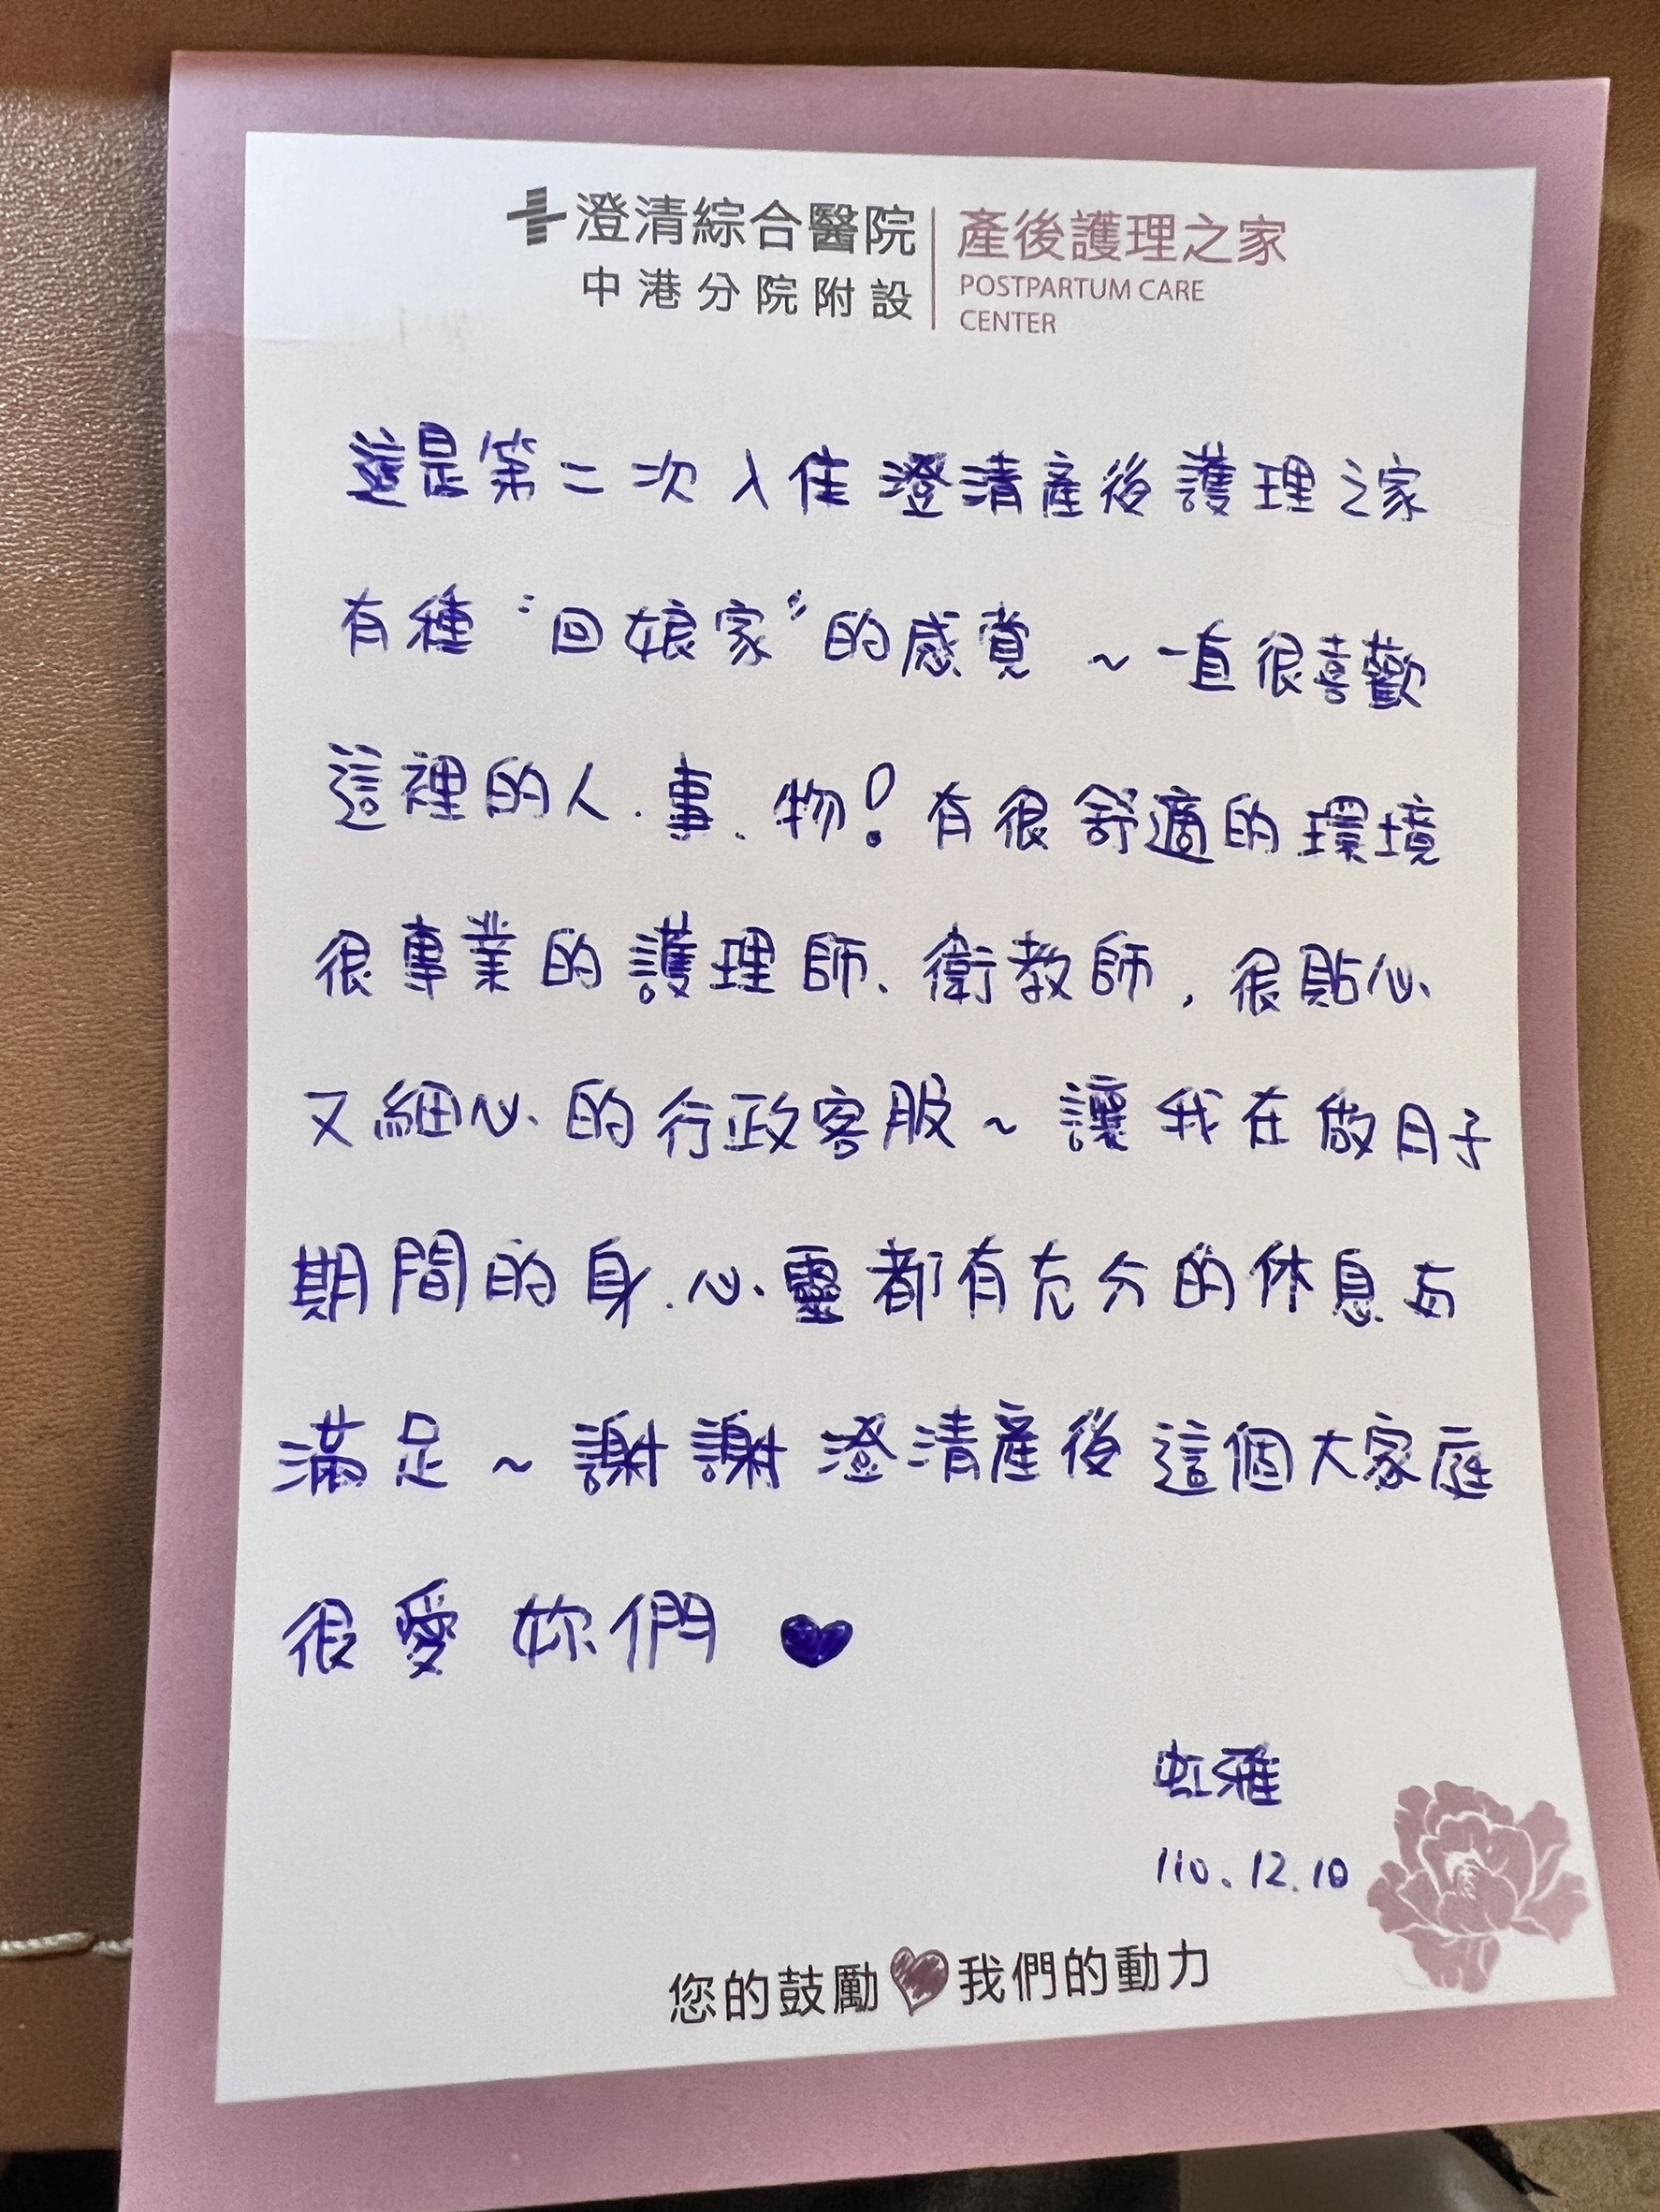 澄清綜合醫院
中港分院附設
產後護理之家
POSTPARTUM CARE
CENTER
這是第二次入住澄清產後護理之家
有種"回娘家"的感覺～一直很喜歡
這裡的人、事、物！有很舒適的環境
很專業的護理師、衛教師，很貼心
又細心的行政客服～讓我在做月子
期間的身、心靈都有充分的休息与
滿足～謝謝澄清產後這個大家庭
很愛妳們♥
虹雅
110.12.10
您的鼓勵♥我們的動力